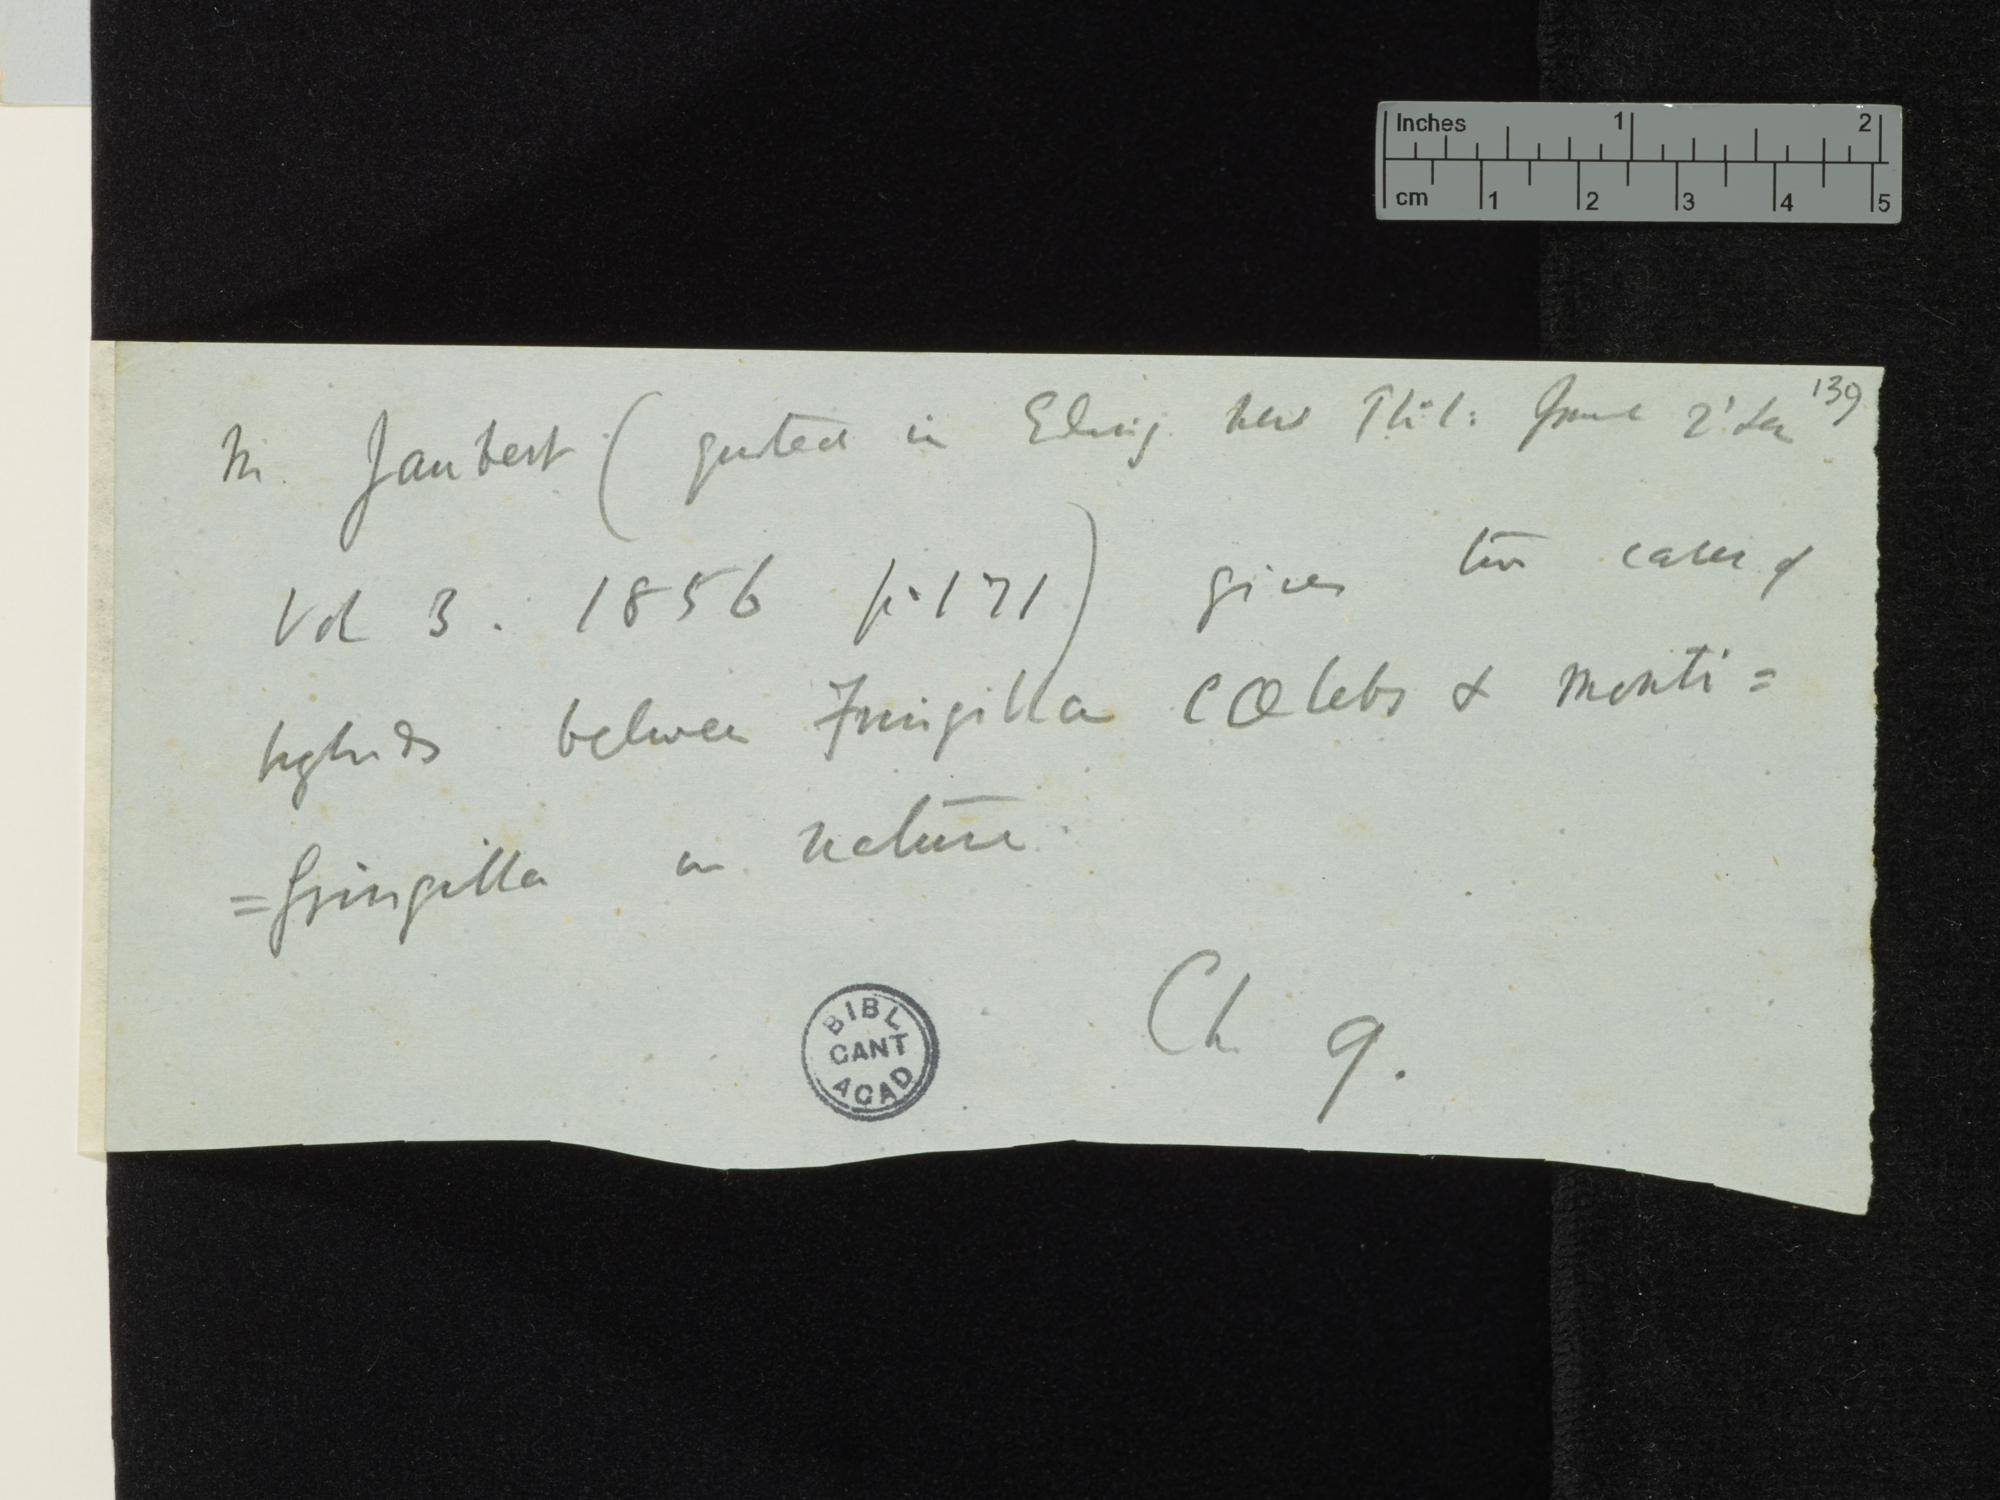 Inches 1 2
cm 1 2 3 4 5
139
M. Jaubert (quoted in Edinig. New Phil: Journal 2d Ser
Vol 3. 1856 p. 171) gives two cases of
hybrids between Fringilla cœlebs & monti=
=fringilla in nature.
Ch 9.
BIBL
CANT
ACAD